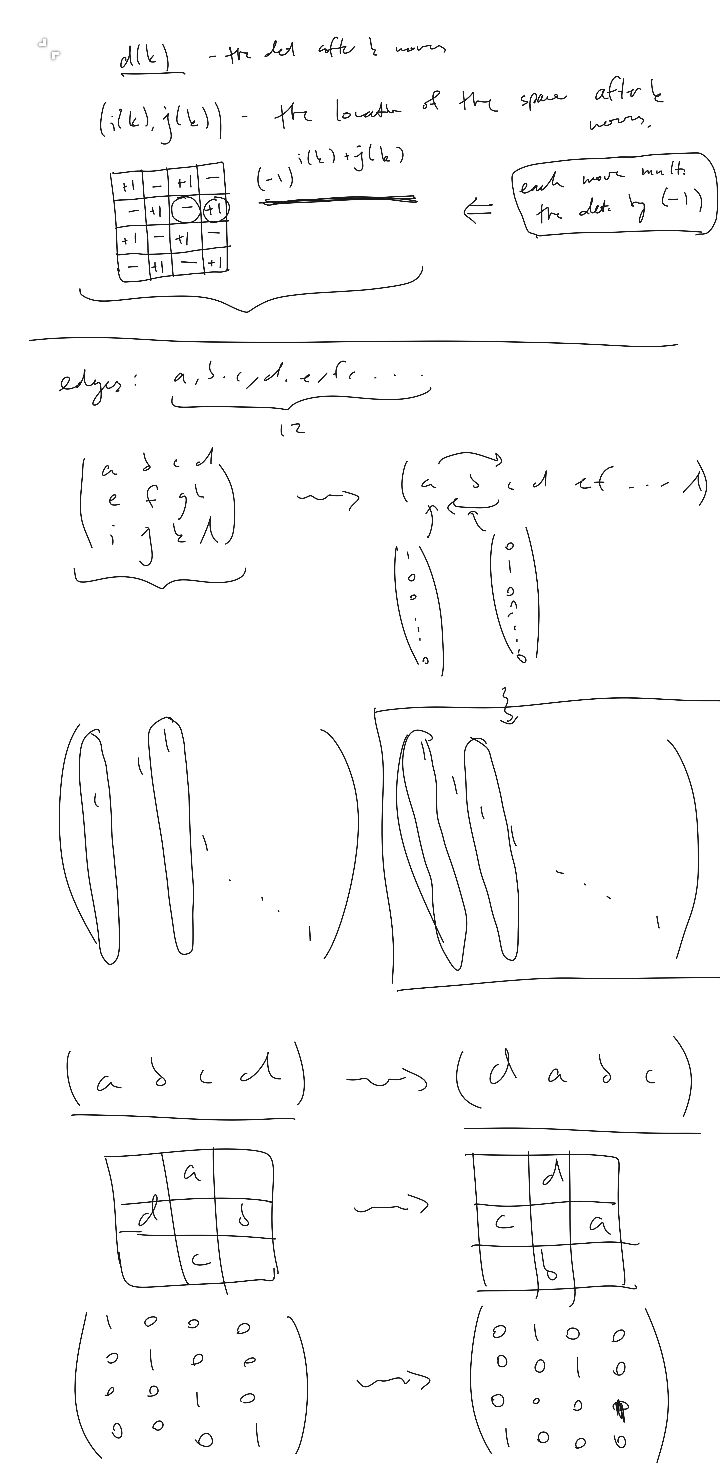 d(k) - the det after k moves
(i(k), j(k)) - the location of the space after k
moves.
(-1)^{i(k)+j(k)}
+1 - +1 -
- +1 - +1
+1 - +1 -
- +1 - +1
⇐
each move mults
the det. by (-1)
edges: a, b, c, d, e, f, ....
12
(a b c d
e f g h
i j k l)
→
(a b c d e f ... l)
(1 0 0 ... 0)
(0 1 0 0 ... 0)
(1 1 1 1 ... 1)
(1 1 1 1 ... 1)
(a b c d) → (d a b c)
a
d b
c
→
d
c a
b
1 0 0 0
0 1 0 0
0 0 1 0
0 0 0 1
→
0 1 0 0
0 0 1 0
0 0 0 1
1 0 0 0